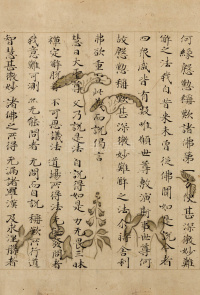 何緣慇懃稱歎諸佛第便甚深微妙
難解之法我自昔來未曾從佛聞如是說今者
四眾咸皆有疑唯願世尊敷演斯事世尊何
故慇懃稱歎甚深微妙難解之法尒時舍利
弗欲重宣此義而說偈言
慧日大聖尊 久乃說是法 自說得如是 力无畏三昧
禪定解脫等 不可思議法 道場所得法 无能發問者
我意難可測 亦无能問者 无問而自說 稱歎所行道
智慧甚微妙 諸佛之所得 无漏諸羅漢 及求涅槃者